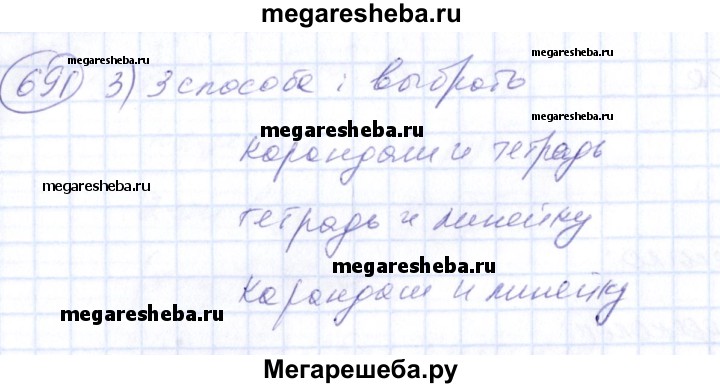 megaresheba.ru
691 3) 3 способа: выбрать
megaresheba.ru
megaresheba.ru
карандаш и тетрадь
megaresheba.ru
тетрадь и линейку
megaresheba.ru
карандаш и линейку
megaresheba.ru
Мегарешеба.ру